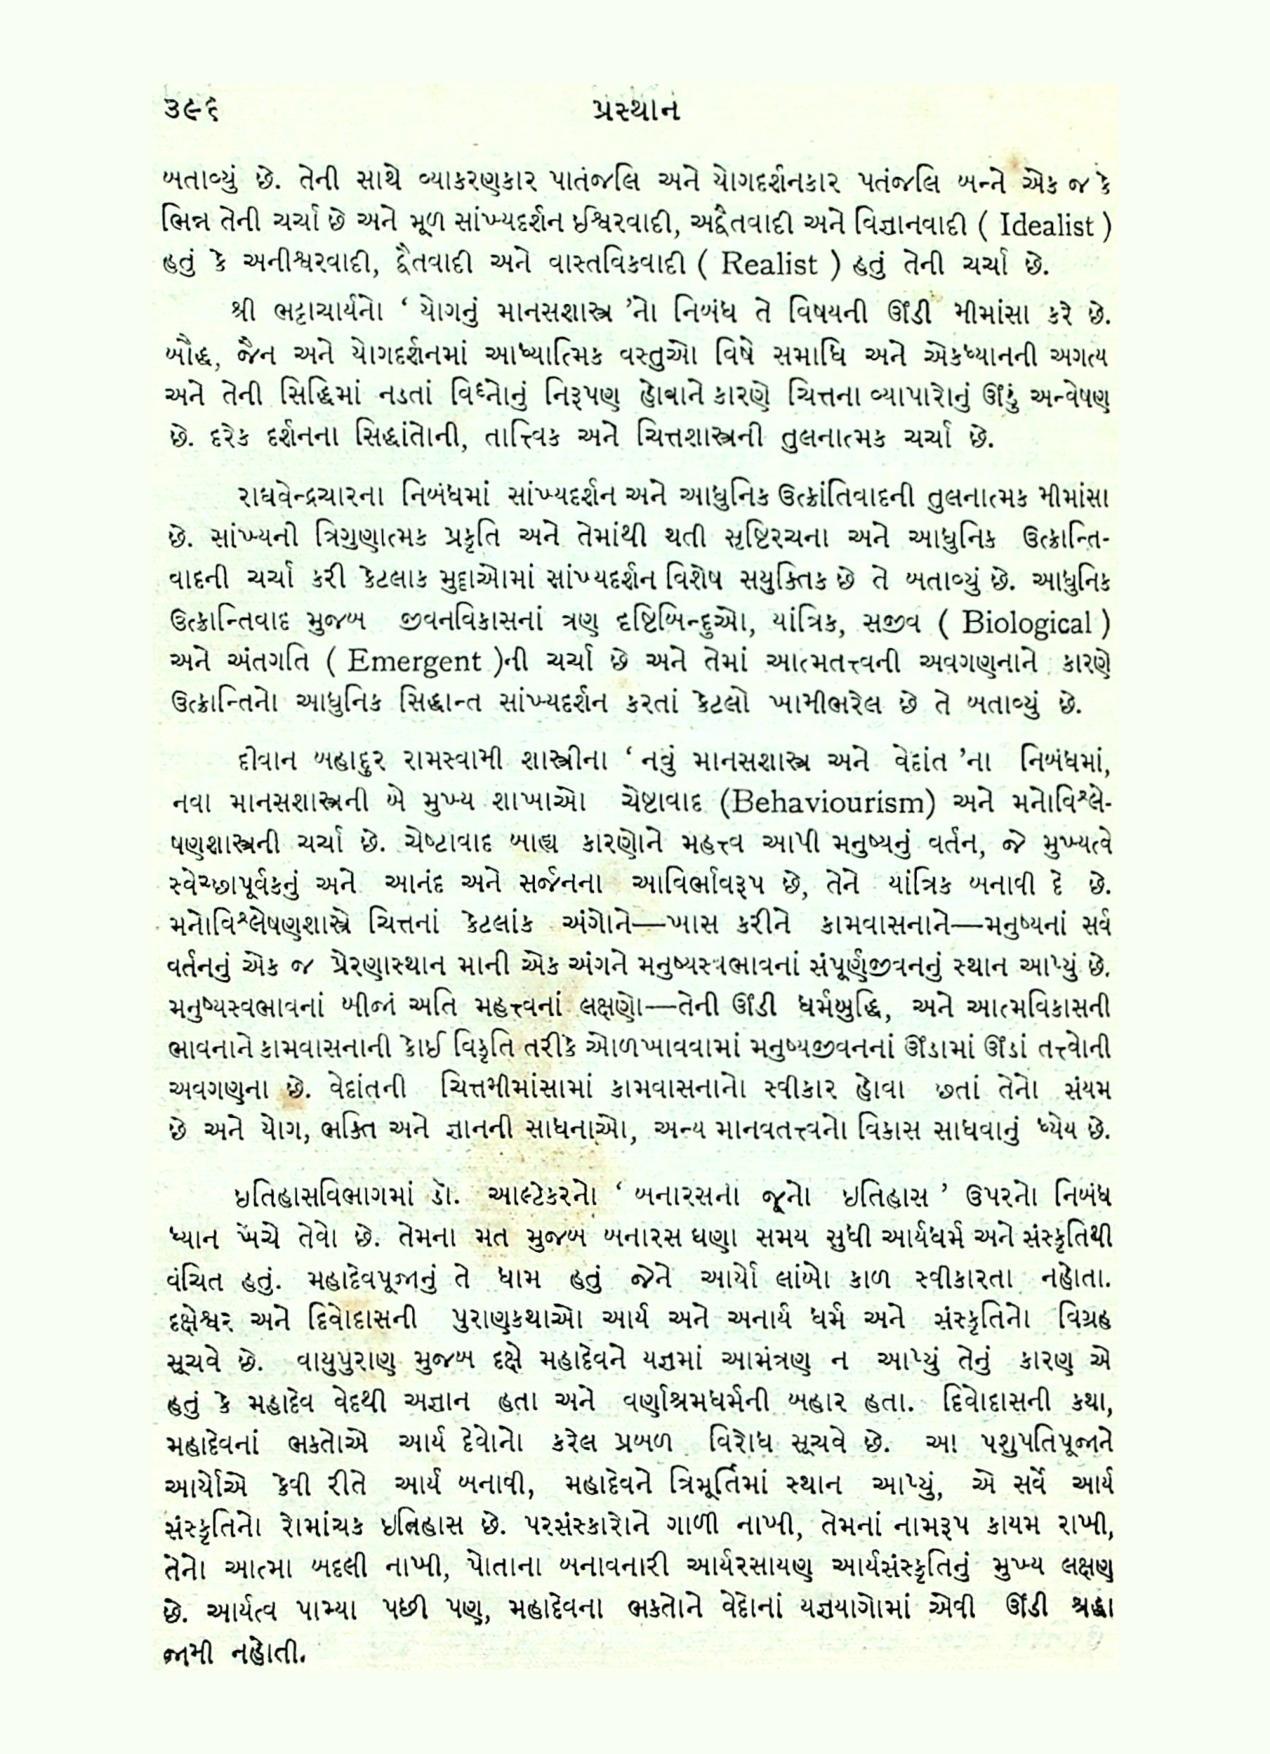 ૩૯૬
પ્રસ્થાન
બતાવ્યું છે. તેની સાથે વ્યાકરણકાર પાતંજલિ અને યોગદર્શનકાર પતંજલિ બન્ને એક જ કે
ભિન્ન તેની ચર્ચા છે અને મૂળ સાંખ્યદર્શન ઈશ્વિરવાદી, અદ્વૈતવાદી અને વિજ્ઞાનવાદી ( Idealist )
હતું કે અનીશ્વરવાદી, દ્વૈતવાદી અને વાસ્તવિકવાદી ( Realist ) હતું તેની ચર્ચા છે.
શ્રી ભટ્ટાચાર્યનો ‘ યોગનું માનસશાસ્ત્ર ’નો નિબંધ તે વિષયની ઊંડી મીમાંસા કરે છે.
બૌદ્ધ, જૈન અને યોગદર્શનમાં આધ્યાત્મિક વસ્તુઓ વિષે સમાધિ અને એકધ્યાનની અગત્ય
અને તેની સિદ્ધિમાં નડતાં વિઘ્નોનું નિરૂપણ હોવાને કારણે ચિત્તના વ્યાપારોનું ઊંડું અન્વેષણ
છે. દરેક દર્શનના સિદ્ધાંતોની, તાત્ત્વિક અને ચિત્તશાસ્ત્રની તુલનાત્મક ચર્ચા છે.
રાઘવેન્દ્રચારના નિબંધમાં સાંખ્યદર્શન અને આધુનિક ઉત્ક્રાંતિવાદની તુલનાત્મક મીમાંસા
છે. સાંખ્યની ત્રિગુણાત્મક પ્રકૃતિ અને તેમાંથી થતી સૃષ્ટિરચના અને આધુનિક ઉત્ક્રાન્તિ-
વાદની ચર્ચા કરી કેટલાક મુદ્દાઓમાં સાંખ્યદર્શન વિશેષ સયુક્તિક છે તે બતાવ્યું છે. આધુનિક
ઉત્ક્રાન્તિવાદ મુજબ જીવનવિકાસનાં ત્રણ દૃષ્ટિબિન્દુઓ, યાંત્રિક, સજીવ ( Biological )
અને અંતગતિ ( Emergent )ની ચર્ચા છે અને તેમાં આત્મતત્ત્વની અવગણનાને કારણે
ઉત્ક્રાન્તિનો આધુનિક સિદ્ધાન્ત સાંખ્યદર્શન કરતાં કેટલો ખામીભરેલ છે તે બતાવ્યું છે.
દીવાન બહાદુર રામસ્વામી શાસ્ત્રીના ‘ નવું માનસશાસ્ત્ર અને વેદાંત ’ના નિબંધમાં,
નવા માનસશાસ્ત્રની બે મુખ્ય શાખાઓ ચેષ્ટાવાદ (Behaviourism) અને મનોવિશ્લે-
ષણશાસ્ત્રની ચર્ચા છે. ચેષ્ટાવાદ બાહ્ય કારણોને મહત્ત્વ આપી મનુષ્યનું વર્તન, જે મુખ્યત્વે
સ્વેચ્છાપૂર્વકનું અને આનંદ અને સર્જનના આવિર્ભાવરૂપ છે, તેને યાંત્રિક બનાવી દે છે.
મનોવિશ્લેષણશાસ્ત્રે ચિત્તનાં કેટલાંક અંગોને—ખાસ કરીને કામવાસનાને—મનુષ્યનાં સર્વ
વર્તનનું એક જ પ્રેરણાસ્થાન માની એક અંગને મનુષ્યસ્વભાવનાં સંપૂર્ણજીવનનું સ્થાન આપ્યું છે.
મનુષ્યસ્વભાવનાં બીજાં અતિ મહત્ત્વનાં લક્ષણો—તેની ઊંડી ધર્મબુદ્ધિ, અને આત્મવિકાસની
ભાવનાને કામવાસનાની કોઈ વિકૃતિ તરીકે ઓળખાવવામાં મનુષ્યજીવનનાં ઊંડામાં ઊંડાં તત્ત્વોની
અવગણના છે. વેદાંતની ચિત્તમીમાંસામાં કામવાસનાનો સ્વીકાર હોવા છતાં તેનો સંયમ
છે અને યોગ, ભક્તિ અને જ્ઞાનની સાધનાઓ, અન્ય માનવતત્ત્વનો વિકાસ સાધવાનું ધ્યેય છે.
ઇતિહાસવિભાગમાં ડૉ. આલ્ટેકરનો ‘ બનારસનો જૂનો ઇતિહાસ ’ ઉપરનો નિબંધ
ધ્યાન ખેંચે તેવો છે. તેમના મત મુજબ બનારસ ઘણા સમય સુધી આર્યધર્મ અને સંસ્કૃતિથી
વંચિત હતું. મહાદેવપૂજાનું તે ધામ હતું જેને આર્યો લાંબો કાળ સ્વીકારતા નહોતા.
દક્ષેશ્વર અને દિવોદાસની પુરાણકથાઓ આર્ય અને અનાર્ય ધર્મ અને સંસ્કૃતિનો વિગ્રહ
સૂચવે છે. વાયુપુરાણ મુજબ દક્ષે મહાદેવને યજ્ઞમાં આમંત્રણ ન આપ્યું તેનું કારણ એ
હતું કે મહાદેવ વેદથી અજ્ઞાન હતા અને વર્ણાશ્રમધર્મની બહાર હતા. દિવોદાસની કથા,
મહાદેવનાં ભક્તોએ આર્ય દેવોનો કરેલ પ્રબળ વિરોધ સૂચવે છે. આ પશુપતિપૂજાને
આર્યોએ કેવી રીતે આર્ય બનાવી, મહાદેવને ત્રિમૂર્તિમાં સ્થાન આપ્યું, એ સર્વે આર્ય
સંસ્કૃતિનો રોમાંચક ઇતિહાસ છે. પરસંસ્કારોને ગાળી નાખી, તેમનાં નામરૂપ કાયમ રાખી,
તેનો આત્મા બદલી નાખી, પોતાના બનાવનારી આર્યરસાયણ આર્યસંસ્કૃતિનું મુખ્ય લક્ષણ
છે. આર્યત્વ પામ્યા પછી પણ, મહાદેવના ભક્તોને વેદોનાં યજ્ઞયાગોમાં એવી ઊંડી શ્રદ્ધા
જામી નહોતી.